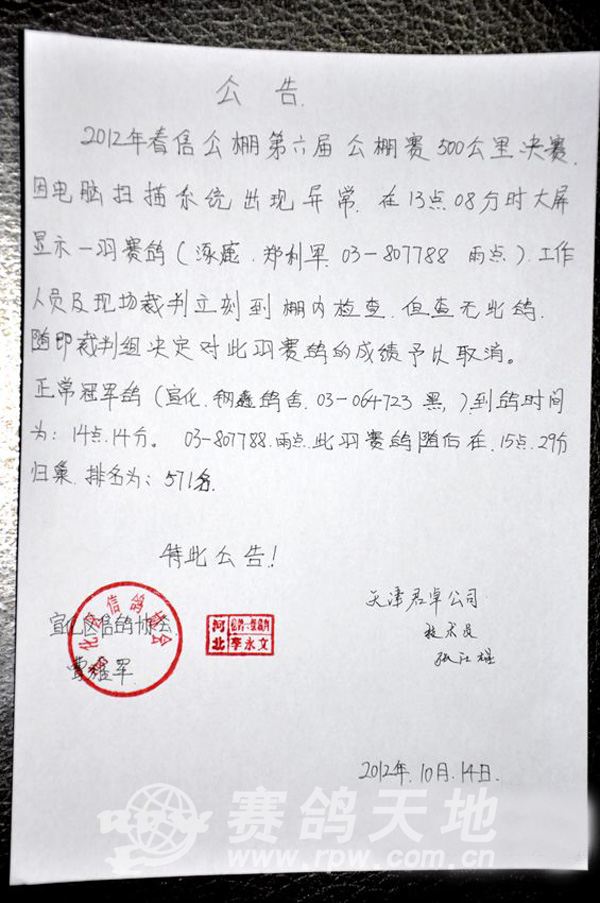 公告.
2012年春信公棚第六届公棚赛500公里决赛.
因电脑扫描系统出现异常.在13点08分时大屏
显示一羽赛鸽(涿鹿.郑利军.03-807788雨点).工作
人员及现场裁判立刻到棚内检查.但查无此鸽.
随即裁判组决定对此羽赛鸽的成绩予以取消。
正常冠军鸽(宣化.钢鑫鸽舍.03-064723黑,)到鸽时间
为:14点.14分。03-807788.雨点.此羽赛鸽随后在.15点.29分
归巢.排名为:571名.
特此公告!
宣化区信鸽协会
河北
李永文
天津君卓公司
技术员
2012年.10月.14日.
赛鸽天地
www.rpw.com.cn